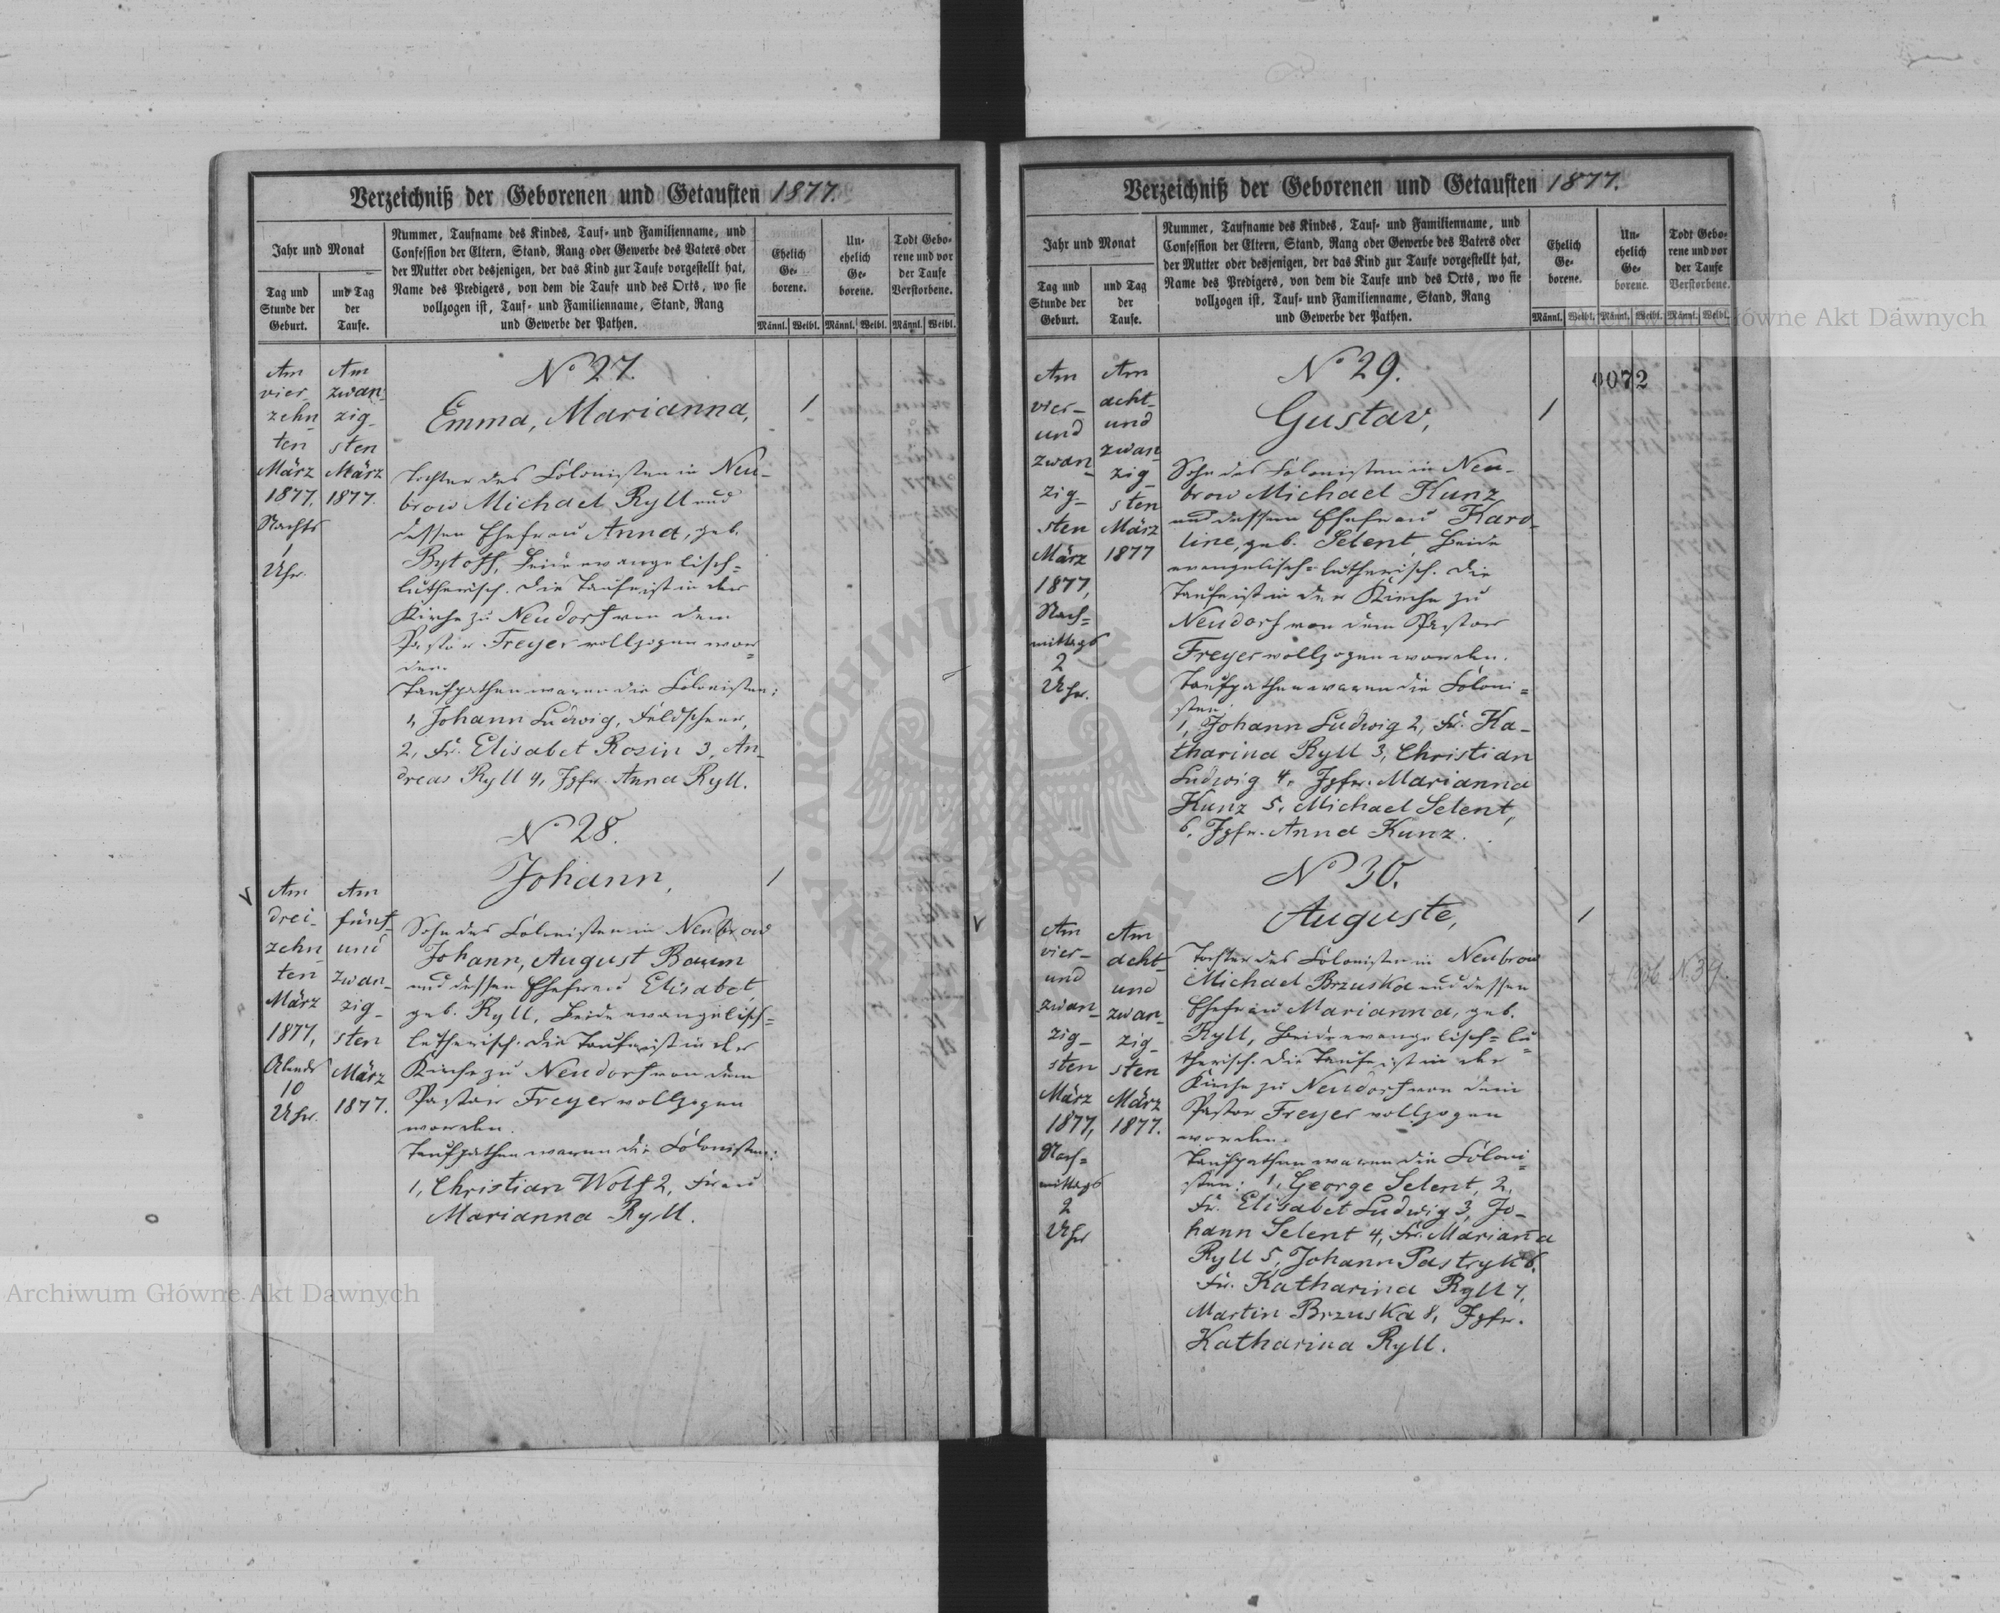 Verzeichniß der Geborenen und Getauften 1877.
Jahr und Monat
Tag und
Stunde der
Geburt.
und Tag
der
Taufe.
Nummer, Taufname des Kindes, Tauf- und Familienname, und
Confession der Eltern, Stand, Rang oder Gewerbe des Vaters oder
der Mutter oder desjenigen, der das Kind zur Taufe vorgestellt hat,
Name des Predigers, von dem die Taufe und des Orts, wo sie
vollzogen ist, Tauf- und Familienname, Stand, Rang
und Gewerbe der Pathen.
Ehelich
Ge-
borene.
Un-
ehelich
Ge-
borene.
Todt Gebo-
rene und vor
der Taufe
Verstorbene.
Männl. Weibl. Männl. Weibl. Männl. Weibl.
Am
vier-
zehn-
ten
März
1877,
Nachts
1
Uhr.
Am
zwan-
zig-
sten
März
1877.
No 27.
Emma, Marianna,
Tochter des Colonisten in Neu-
brow Michael Ryll und
dessen Ehefrau Anna, geb.
Bytoff, Beide evangelisch-
lutherisch. Die Taufe ist in der
Kirche zu Neudorf von dem
Pastor Freyer vollzogen wor-
den.
Taufpathen waren die Colonisten:
1, Johann Ludwig, Feldscheer,
2, Fr. Elisabet Rosin 3, An-
dreas Ryll 4, Jgfr. Anna Ryll.
1
Am
drei-
zehn-
ten
März
1877,
Abends
10
Uhr.
Am
fünf-
und
zwan-
zig-
sten
März
1877.
No 28.
Johann,
Sohn des Colonisten in Neubrow
Johann, August Baum
und dessen Ehefrau Elisabet,
geb. Ryll, Beide evangelisch-
lutherisch. Die Taufe ist in der
Kirche zu Neudorf von dem
Pastor Freyer vollzogen
worden.
Taufpathen waren die Colonisten:
1, Christian Wolf 2, Frau
Marianna Ryll.
1
Verzeichniß der Geborenen und Getauften 1877.
Jahr und Monat
Tag und
Stunde der
Geburt.
und Tag
der
Taufe.
Nummer, Taufname des Kindes, Tauf- und Familienname, und
Confession der Eltern, Stand, Rang oder Gewerbe des Vaters oder
der Mutter oder desjenigen, der das Kind zur Taufe vorgestellt hat,
Name des Predigers, von dem die Taufe und des Orts, wo sie
vollzogen ist, Tauf- und Familienname, Stand, Rang
und Gewerbe der Pathen.
Ehelich
Ge-
borene.
Un-
ehelich
Ge-
borene.
Todt Gebo-
rene und vor
der Taufe
Verstorbene.
Männl. Weibl. Männl. Weibl. Männl. Weibl.
0072
Am
vier-
und
zwan-
zig-
sten
März
1877,
Nach-
mittags
2
Uhr.
Am
acht-
und
zwan-
zig-
sten
März
1877
No 29.
Gustav,
Sohn des Colonisten in Neu-
brow Michael Kunz
und dessen Ehefrau Karo-
line, geb. Selent, Beide
evangelisch-lutherisch. Die
Taufe ist in der Kirche zu
Neudorf von dem Pastor
Freyer vollzogen worden.
Taufpathen waren die Coloni-
sten:
1, Johann Ludwig 2, Fr. Ka-
tharina Ryll 3, Christian
Ludwig 4, Jgfr. Marianna
Kunz 5, Michael Selent,
6, Jgfr. Anna Kunz.
1
Am
vier-
und
zwan-
zig-
sten
März
1877,
Nach-
mittags
2
Uhr
Am
acht-
und
zwan-
zig-
sten
März
1877.
No 30.
Auguste,
Tochter des Colonisten in Neubrow
Michael Brzuska und dessen
Ehefrau Marianna, geb.
Ryll, Beide evangelisch-lu-
therisch. Die Taufe ist in der
Kirche zu Neudorf von dem
Pastor Freyer vollzogen
worden.
Taufpathen waren die Coloni-
sten: 1, George Selent, 2,
Fr. Elisabet Ludwig 3, Jo-
hann Selent 4, Fr. Marianna
Ryll 5, Johann Pastryk 6,
Fr. Katharina Ryll 7,
Martin Brzuska 8, Jgfr.
Katharina Ryll.
1
N. 34.
Archiwum Główne Akt Dawnych
Główne Akt Dawnych